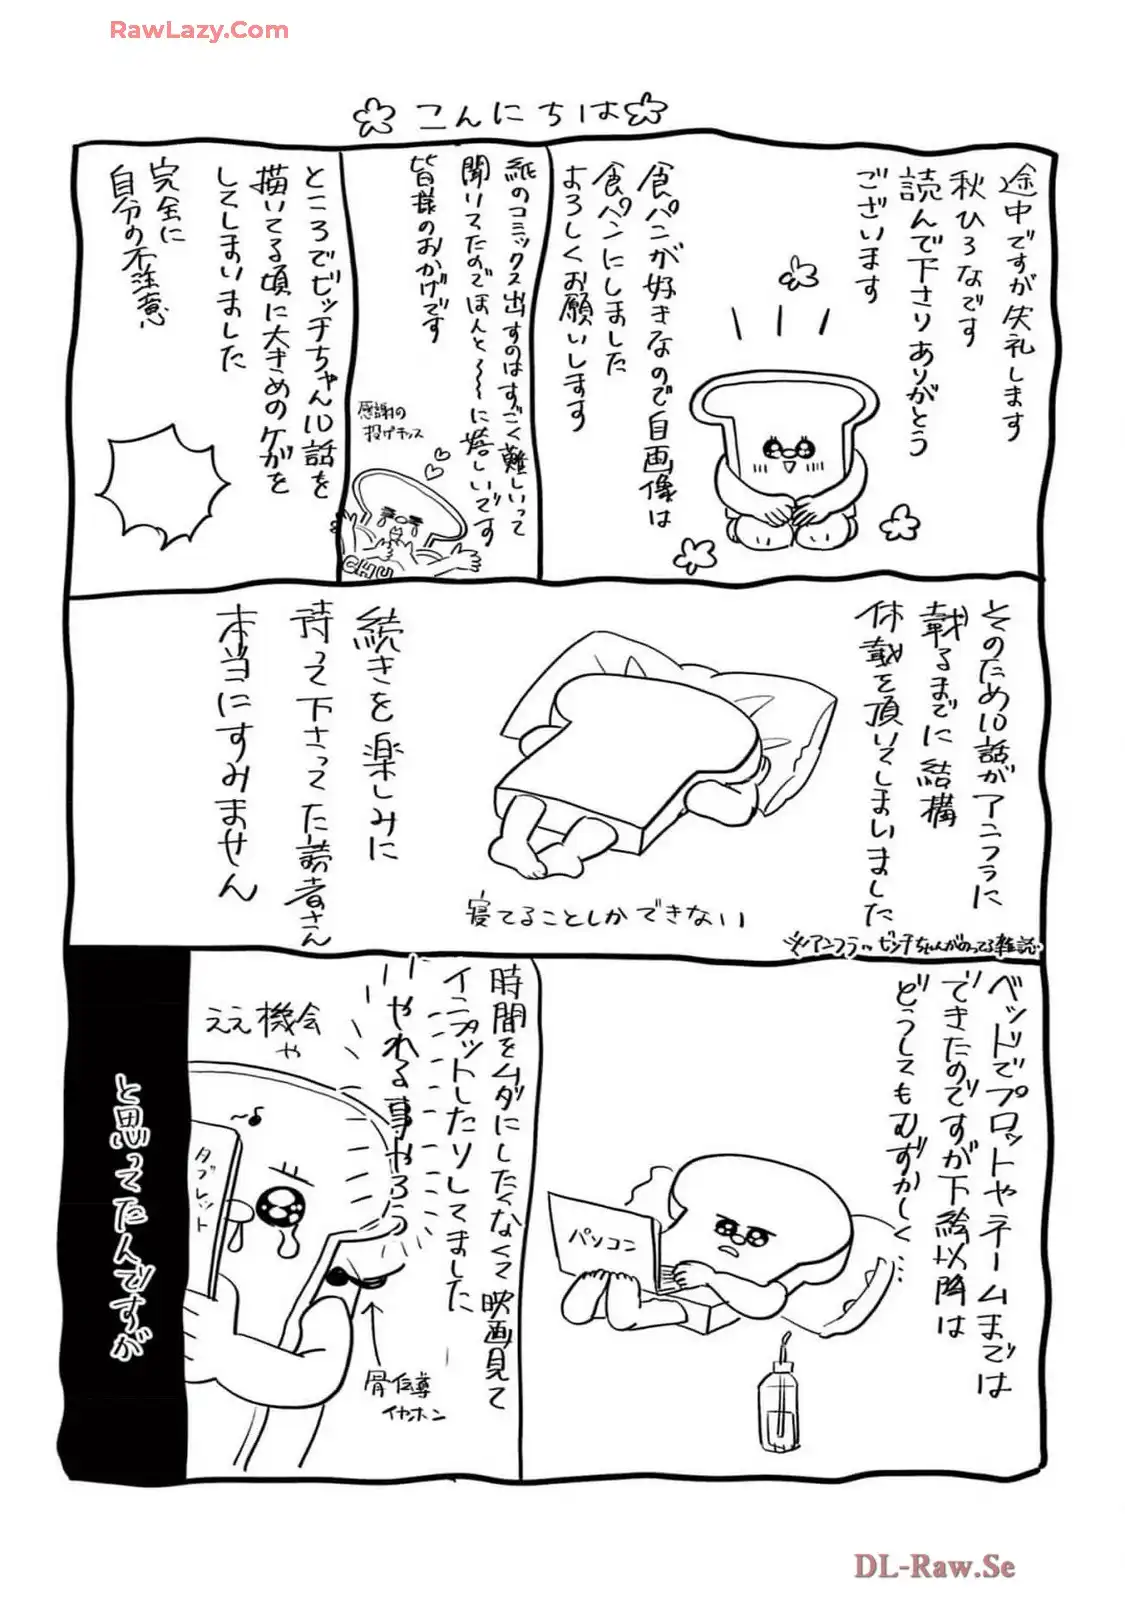 RawLazy.Com
こんにちは
途中ですが失礼します
秋ひろなです
読んで下さりありがとう
ございます
食パンが好きなので自画像は
食パンにしました
よろしくお願いします
紙のコミックス出すのはすごく難しいって
聞いてたのでほんと～～に嬉しいです
皆様のおかげです
感謝の
投げキッス
CHU
ところでビッチちゃん10話を
描いてる頃に大きめのケガを
してしまいました
完全に
自分の不注意
そのため10話がアニフラに
載るまでに結構
休載を頂いてしまいました
※アニフラ…ビッチちゃんがのってる雑誌
寝てることしかできない
続きを楽しみに
待って下さってた読者さん
本当にすみません
ベッドでプロットやネームまでは
できたのですが下絵以降は
どうしてもむずかしく…
パソコン
時間をムダにしたくなくて映画見て
インプットしたりしてました
やれる事やろう
ええ機会
や
タブレット
骨伝導
イヤホン
と思ってたんですが
DL-Raw.Se